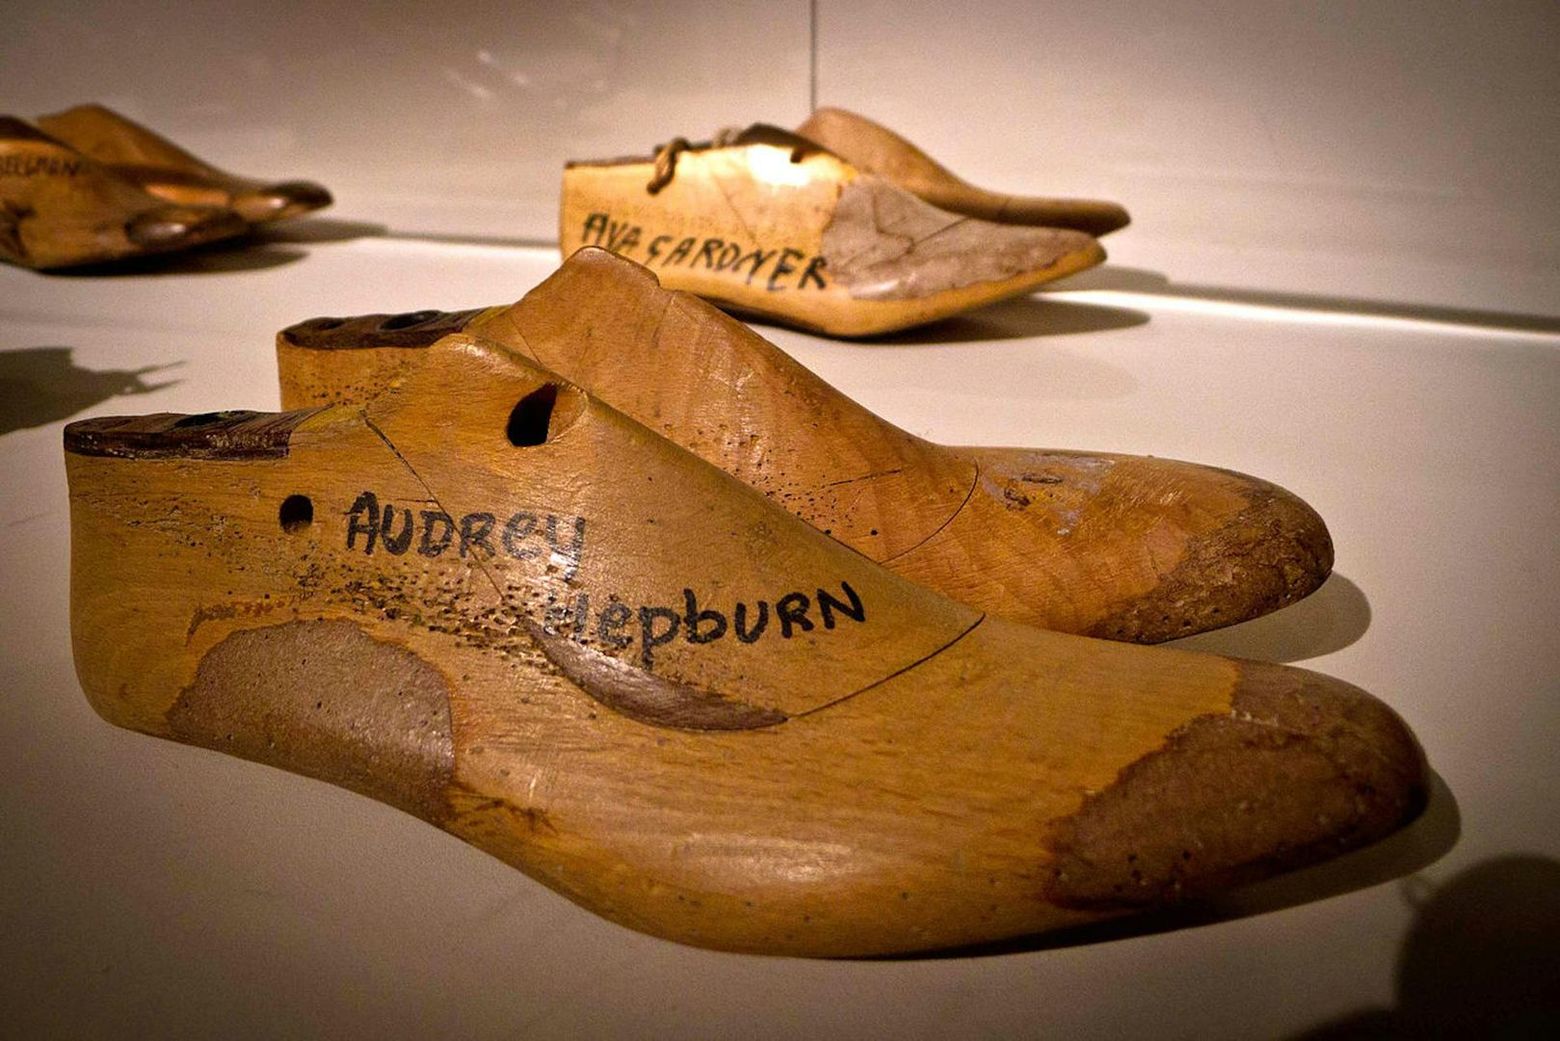 AVA GARDNER
AUDRey
Hepburn